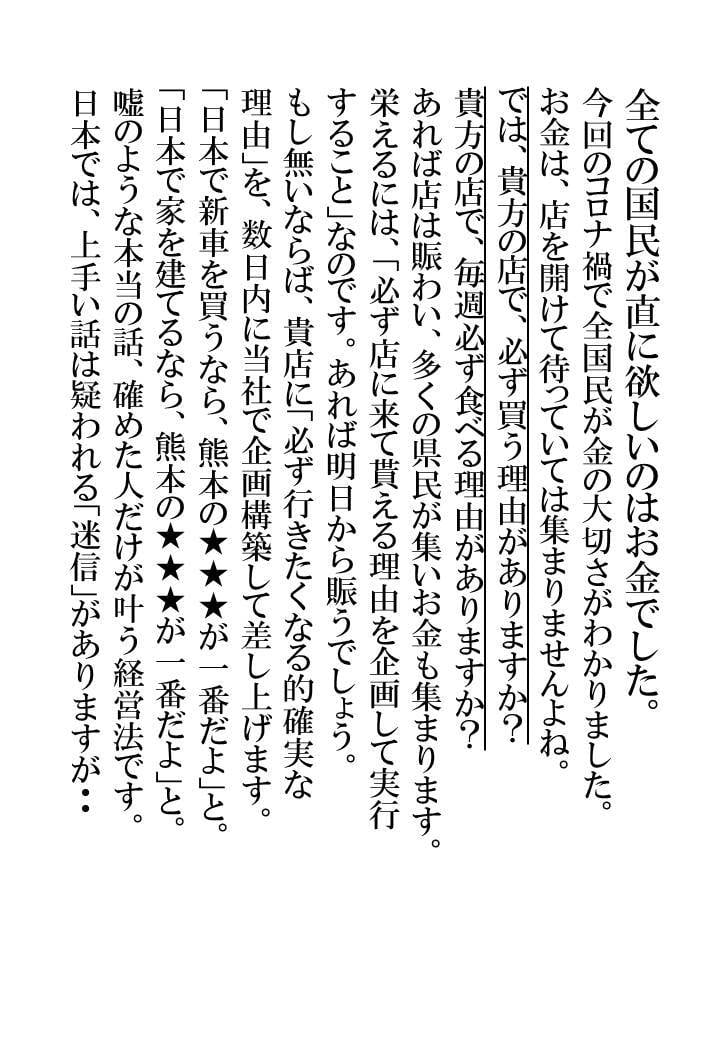 全ての国民が直に欲しいのはお金でした。
今回のコロナ禍で全国民が金の大切さがわかりました。
お金は、店を開けて待っていては集まりませんよね。
では、貴方の店で、必ず買う理由がありますか？
貴方の店で、毎週必ず食べる理由がありますか？
あれば店は賑わい、多くの県民が集いお金も集まります。
栄えるには、「必ず店に来て貰える理由を企画して実行
すること」なのです。あれば明日から賑うでしょう。
もし無いならば、貴店に「必ず行きたくなる的確実な
理由」を、数日内に当社で企画構築して差し上げます。
「日本で新車を買うなら、熊本の★★★が一番だよ」と。
「日本で家を建てるなら、熊本の★★★が一番だよ」と。
嘘のような本当の話、確めた人だけが叶う経営法です。
日本では、上手い話は疑われる「迷信」がありますが・・